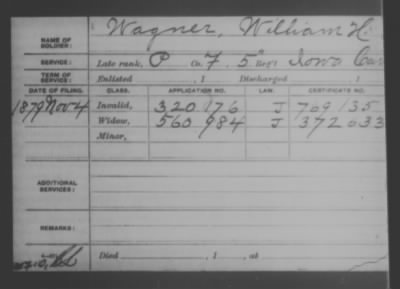 NAME OF SOLDIER: Wagner, William H.
SERVICE: Late rank, P Co. F. 5" Reg't Iowa Cav
TERM OF SERVICE: Enlisted , 1 Discharged , 1
DATE OF FILING. CLASS. APPLICATION NO. LAW. CERTIFICATE NO.
1879 Nov 4 Invalid, 320 176 J 769 135
Widow, 560 984 J 372 033
Minor,
ADDITIONAL SERVICES:
REMARKS:
Died , 1 , at